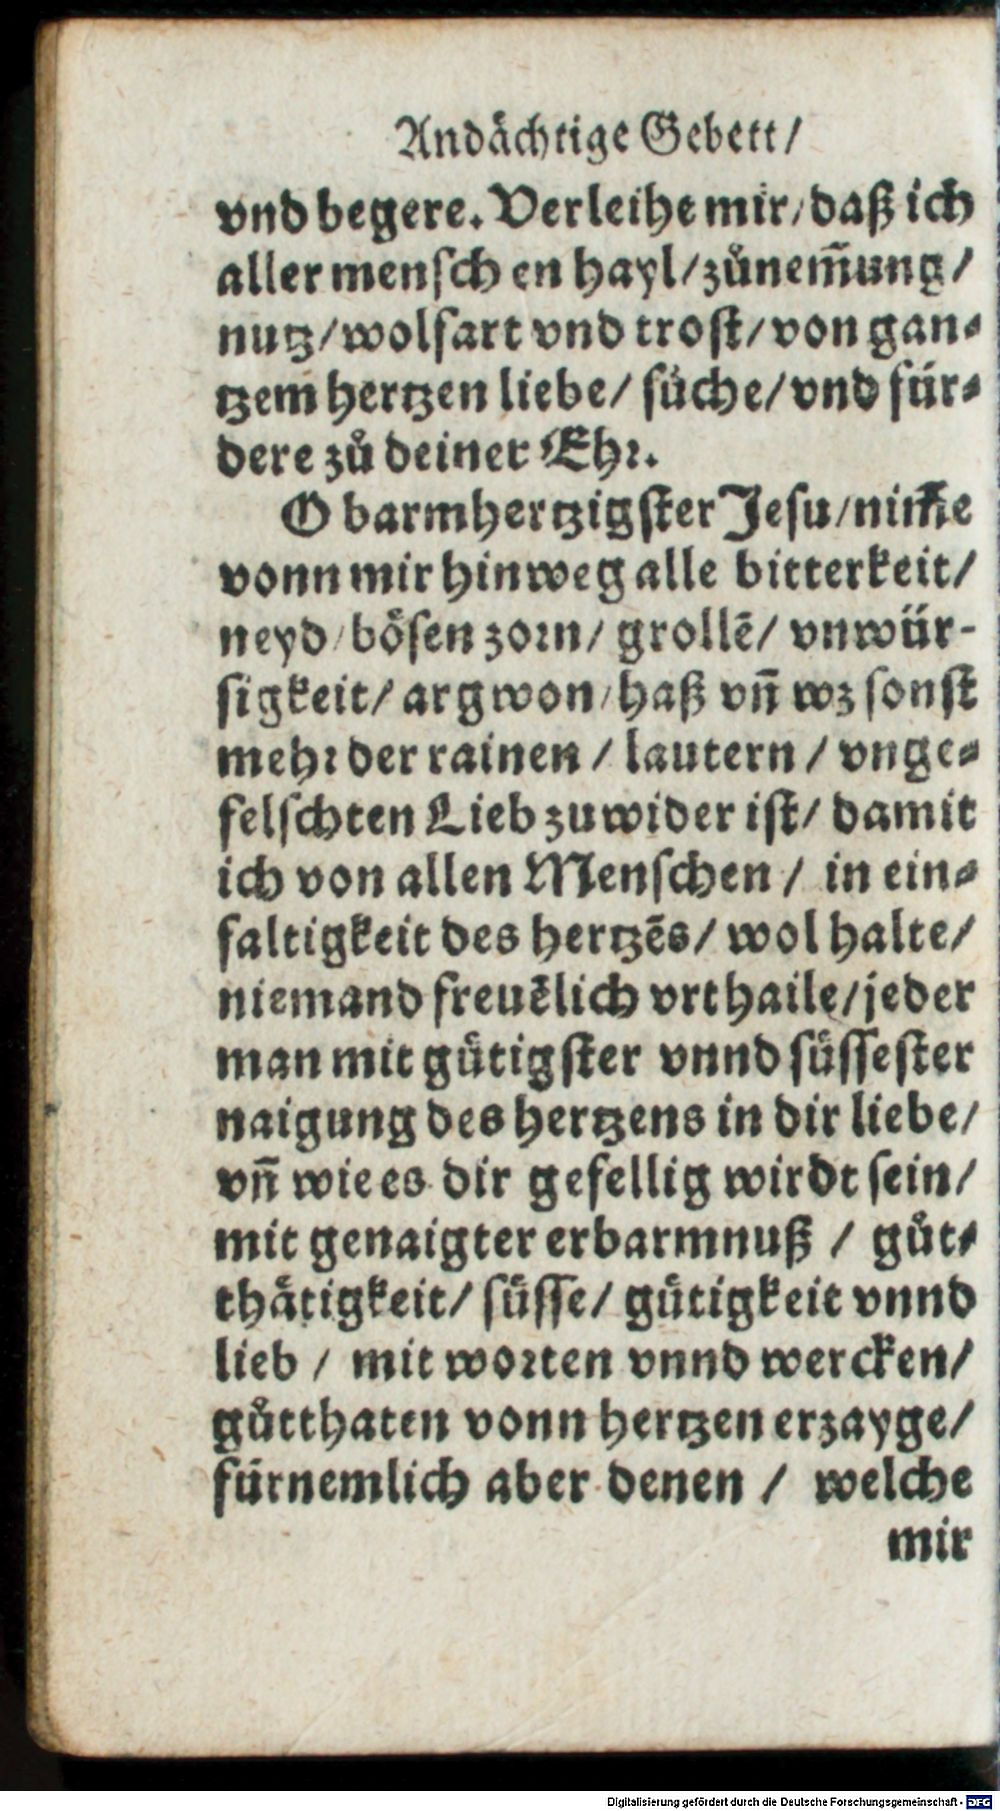 Andächtige Gebett/
vnd begere. Verleihe mir/ daß ich
aller menschen hayl/ zůnem̄ung/
nutz/ wolfart vnd trost/ von gan⸗
tzem hertzen liebe/ sůche/ vnd für⸗
dere zů deiner Ehꝛ.
O barmhertzigster Jesu/ nim̄e
vonn mir hinweg alle bitterkeit/
neyd/ bösen zoꝛn/ grollē/ vnwür-
sigkeit/ argwon/ haß vn̄ wz sonst
mehꝛ der rainen / lautern / vnge⸗
felschten Lieb zuwider ist/ damit
ich von allen Menschen / in ein⸗
faltigkeit des hertzēs/ wol halte/
niemand freuēlich vrthaile/ jeder
man mit gütigster vnnd süssester
naigung des hertzens in dir liebe/
vn̄ wie es dir gefellig wirdt sein/
mit genaigter erbarmnuß / gůt⸗
thätigkeit/ süsse/ gütigkeit vnnd
lieb / mit woꝛten vnnd wercken/
gůtthaten vonn hertzen erzayge/
fürnemlich aber denen / welche
mir
Digitalisierung gefördert durch die Deutsche Forschungsgemeinschaft - DFG